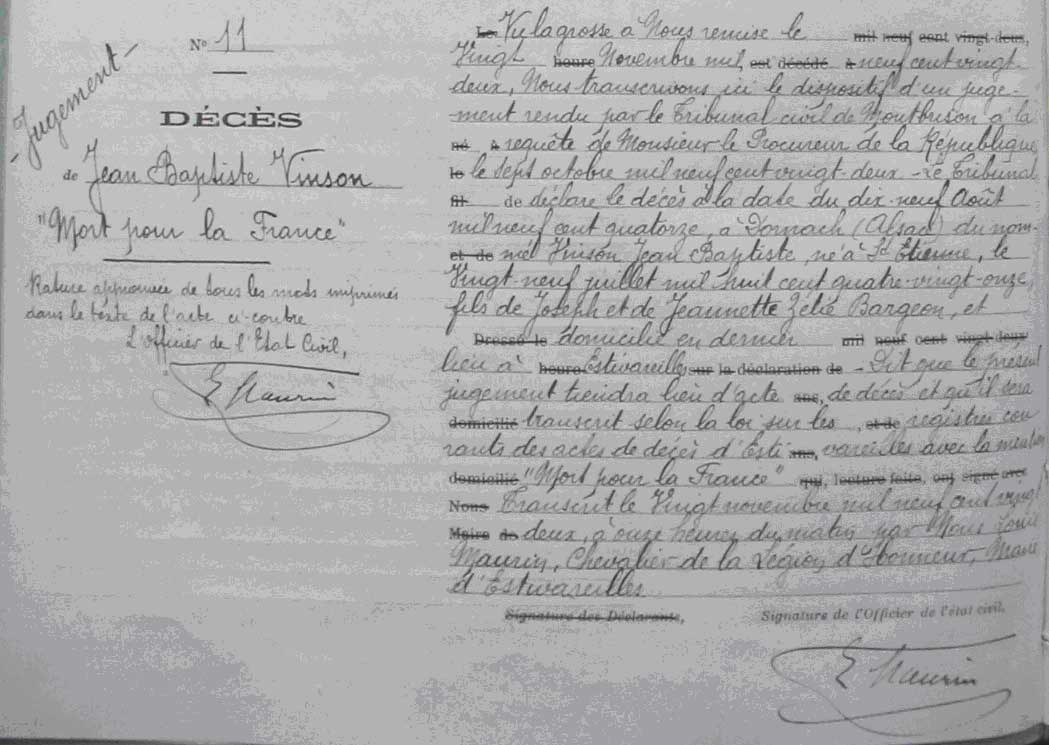 Jugement
N° 11
DÉCÈS
de Jean Baptiste Vinson
"Mort pour la France"
Rature approuvée de tous les mots imprimés
dans le texte de l'acte ci-contre
L'Officier de l'Etat Civil,
E Maurin
Le Vu la grosse à Nous remise le mil neuf cent vingt-deux,
Vingt heure Novembre mil, est décédé à neuf cent vingt-
deux, Nous transcrivons ici le dispositif d'un juge-
ment rendu par le Tribunal civil de Montbrison à la
né à requête de Monsieur le Procureur de la République
le le sept octobre mil neuf cent vingt-deux - Le Tribunal
fil de déclare le décès à la date du dix-neuf Août
mil neuf cent quatorze, à Dornach (Alsace) du nom-
et de mé Vinson Jean Baptiste, né à St Etienne, le
Vingt-neuf juillet mil huit cent quatre-vingt-onze,
fils de Joseph et de Jeannette Zélie Bargeon, et
Dressé le domicilié en dernier mil neuf cent vingt-deux
lieu à heure Estivareilles sur la déclaration de - Dit que le présent
jugement tiendra lieu d'acte ans, de décès et qu'il sera
domicilié transcrit selon la loi sur les , et de registres cou
rants des actes de décès d'Esti ans, vareilles avec la mention
domicilié "Mort pour la France" qui, lecture faite, ont signé avec
Nous Transcrit le Vingt novembre mil neuf cent vingt
Maire de deux, à onze heures du matin par Nous
Maurin, Chevalier de la Légion d'honneur, Maire
d'Estivareilles
Signature des Déclarants, Signature de l'Officier de l'état civil.
E Maurin